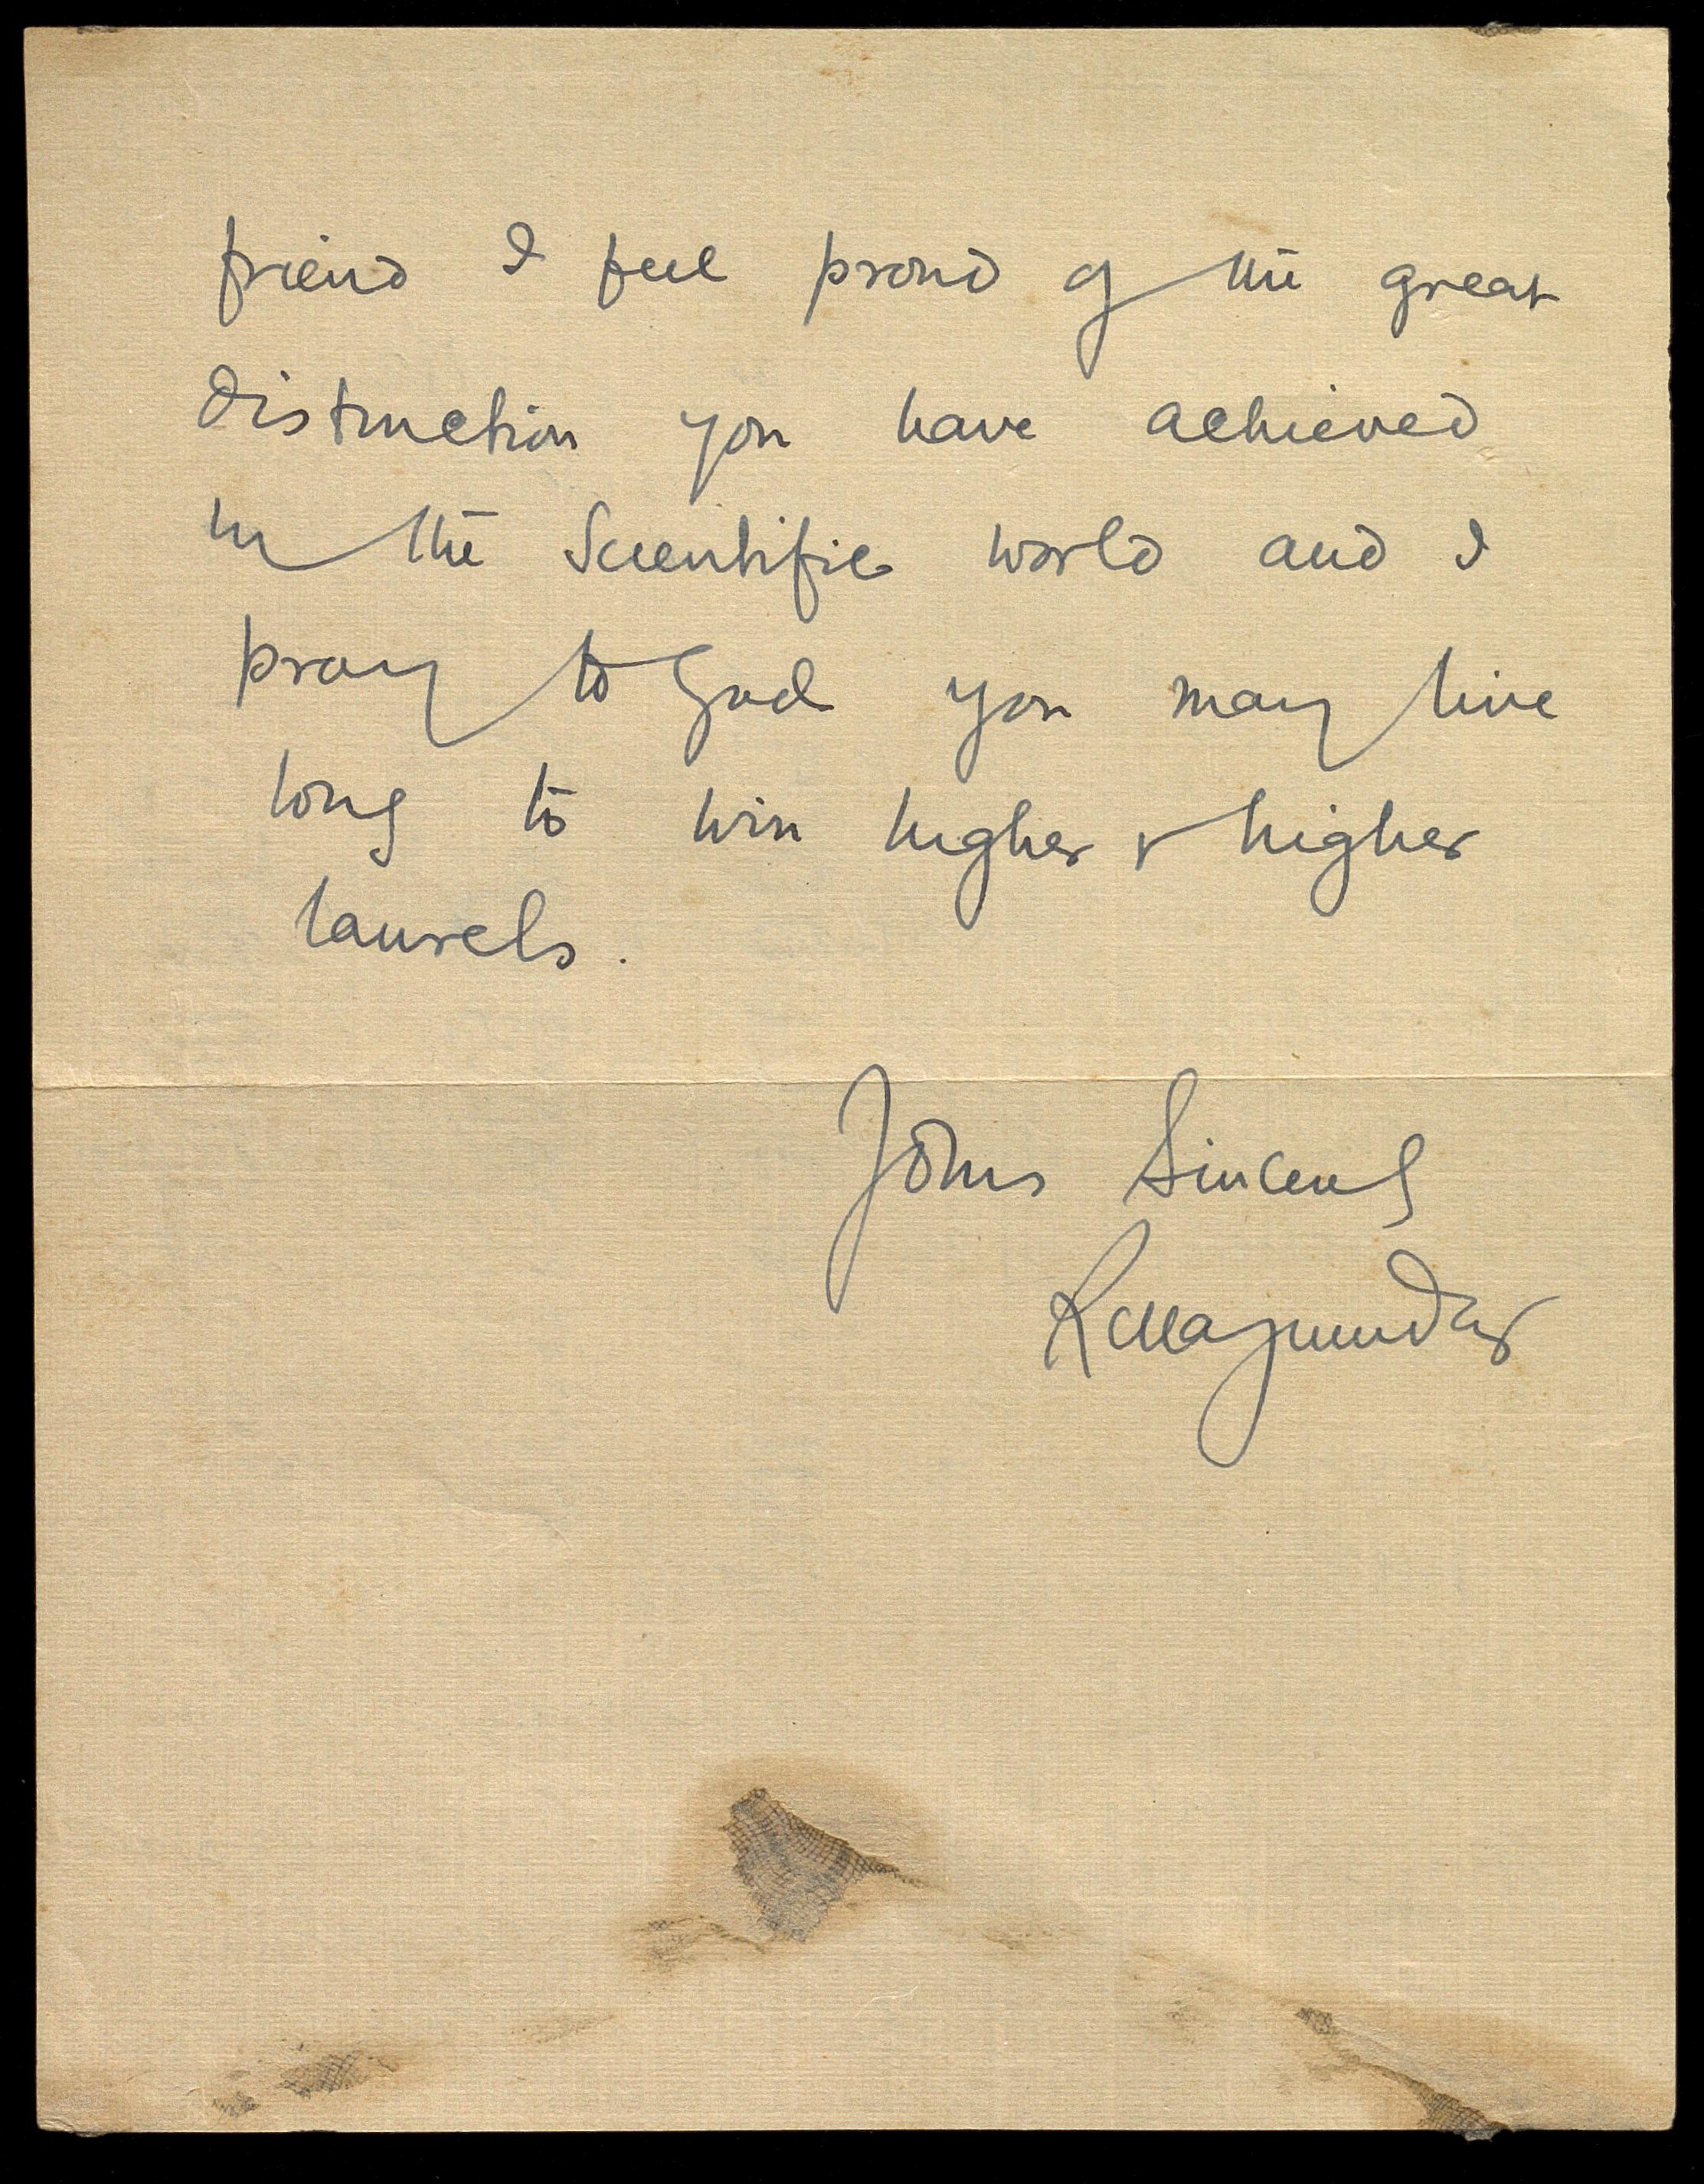 friend I feel proud of the great
distinction you have achieved
in the Scientific world and I
pray to God you may live
long to win higher & higher
laurels.
Yours Sincerely
RCMajumdar